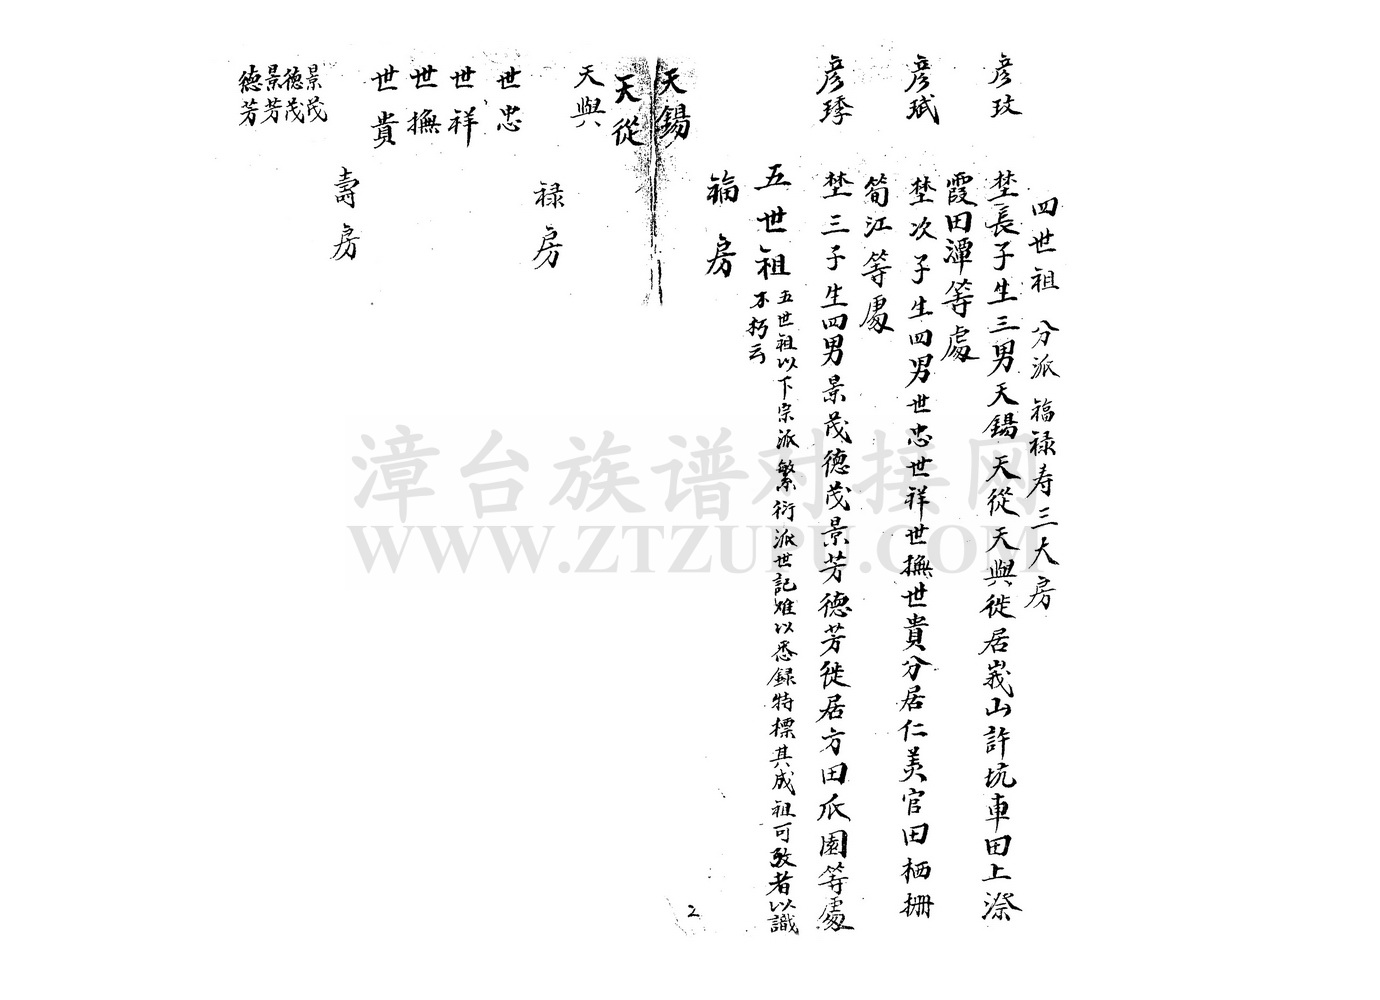 四世祖 分派福禄寿三大房
彦玟
埜長子生三男天錫天從天與徙居峩山許坑車田上漈
霞田潭等處
彦珷
埜次子生四男世忠世祥世撫世貴分居仁美官田栖栅
筍江等處
彦琒
埜三子生四男景茂德茂景芳德芳徙居方田爪園等處
五世祖 五世祖以下宗派繁衍派世記难以悉録特標其成祖可攷者以識
不朽云
福房
天錫
天從
天與
禄房
世忠
世祥
世撫
世貴
壽房
景茂
德茂
景芳
德芳
2
漳台族谱对接网
WWW.ZTZUPU.COM